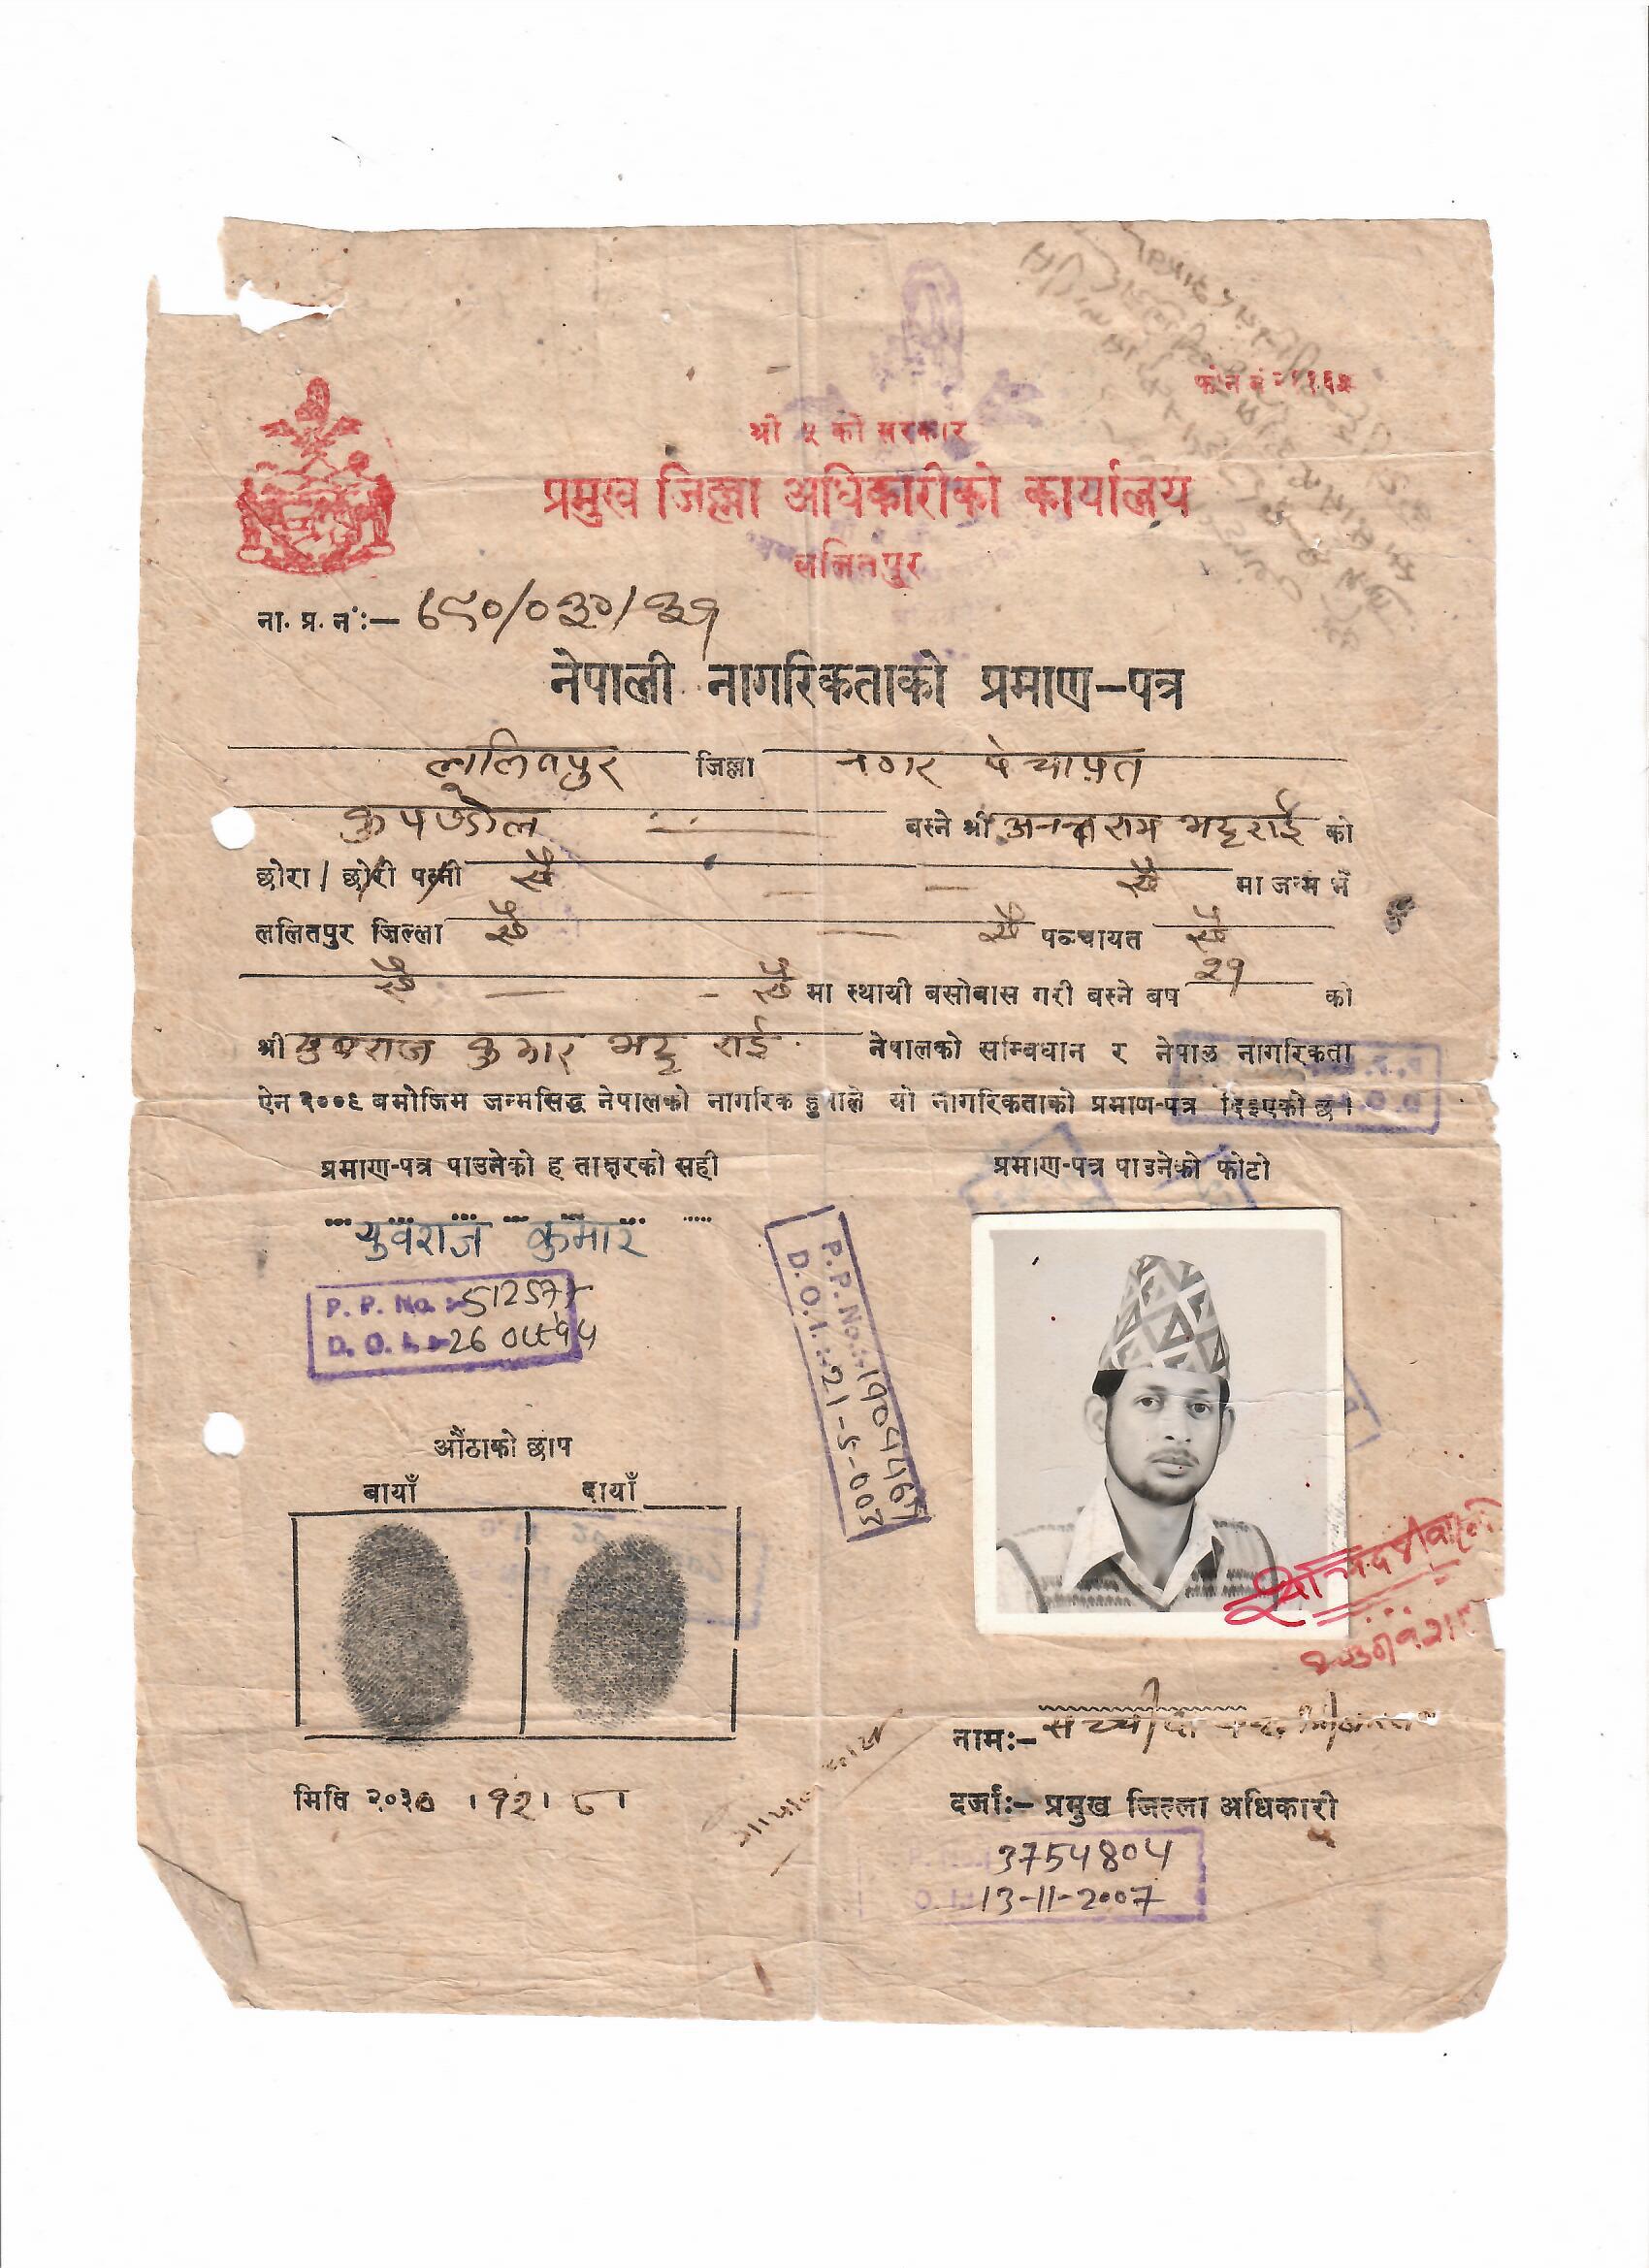 फोन नं
श्री ५ को सरकार
प्रमुख जिल्ला अधिकारीको कार्यालय
ललितपुर
ना. प्र. नं:— ६९०/०३०/३१
नेपाली नागरिकताको प्रमाण-पत्र
ललितपुर जिल्ला नगर पंचायत
कुपण्डोल बस्ने श्री अनन्तराम भट्टराई को
छोरा / छोरी पत्नी ऐै ऐै मा जन्म भै
ललितपुर जिल्ला ऐै ऐै पञ्चायत ऐै
ऐै ऐै मा स्थायी बसोबास गरी बस्ने बर्ष २१ को
श्री युवराज कुमार भट्टराई नेपालको सम्बिधान र नेपाल नागरिकता
ऐन २००९ बमोजिम जन्मसिद्ध नेपालको नागरिक हुनाले यो नागरिकताको प्रमाण-पत्र दिइएको छ ।
प्रमाण-पत्र पाउनेको ह ताक्षरको सही
प्रमाण-पत्र पाउनेको फोटो
युवराज कुमार
P. P. No. :- 512577
D. O. I. :- 26 Oct 94
P.P. No.:-
D.O.I.:-21-5-003
औंठाको छाप
बायाँ दायाँ
नाम:-
मिति २०३० । १२ । ८ ।
दर्जा:- प्रमुख जिल्ला अधिकारी
3754804
13-11-2007